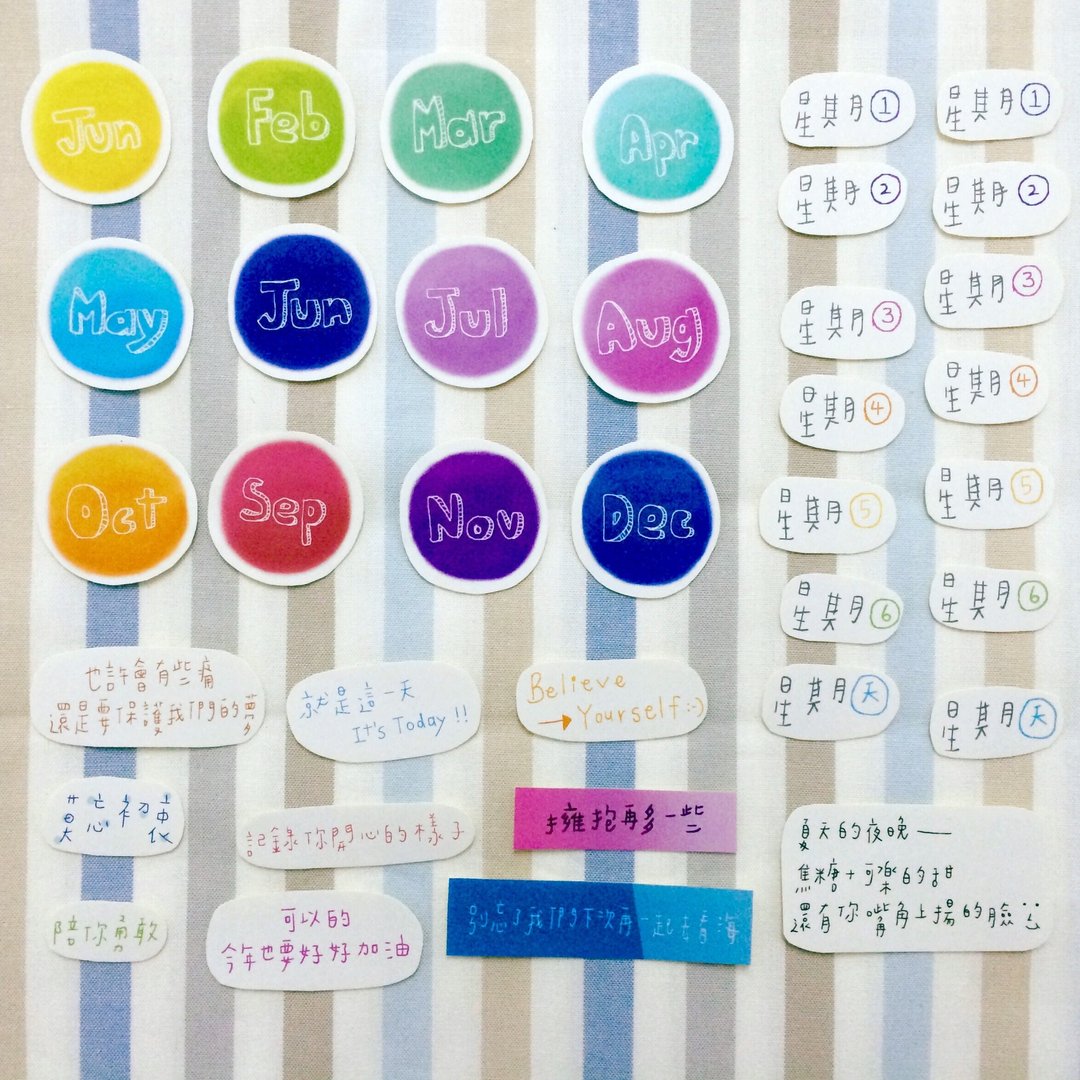 Jun
Feb
Mar
Apr
May
Jun
Jul
Aug
Oct
Sep
Nov
Dec
星期①
星期①
星期②
星期②
星期③
星期③
星期④
星期④
星期⑤
星期⑤
星期⑥
星期⑥
星期天
星期天
也許會有些痛
還是要保護我們的夢
就是這一天
It's Today!!
Believe
→Yourself:-)
莫忘初衷
記錄你開心的樣子
擁抱再多一些
陪你勇敢
可以的
今年也要好好加油
別忘了我們下次再一起去看海
夏天的夜晚——
焦糖+可樂的甜
還有你嘴角上揚的臉